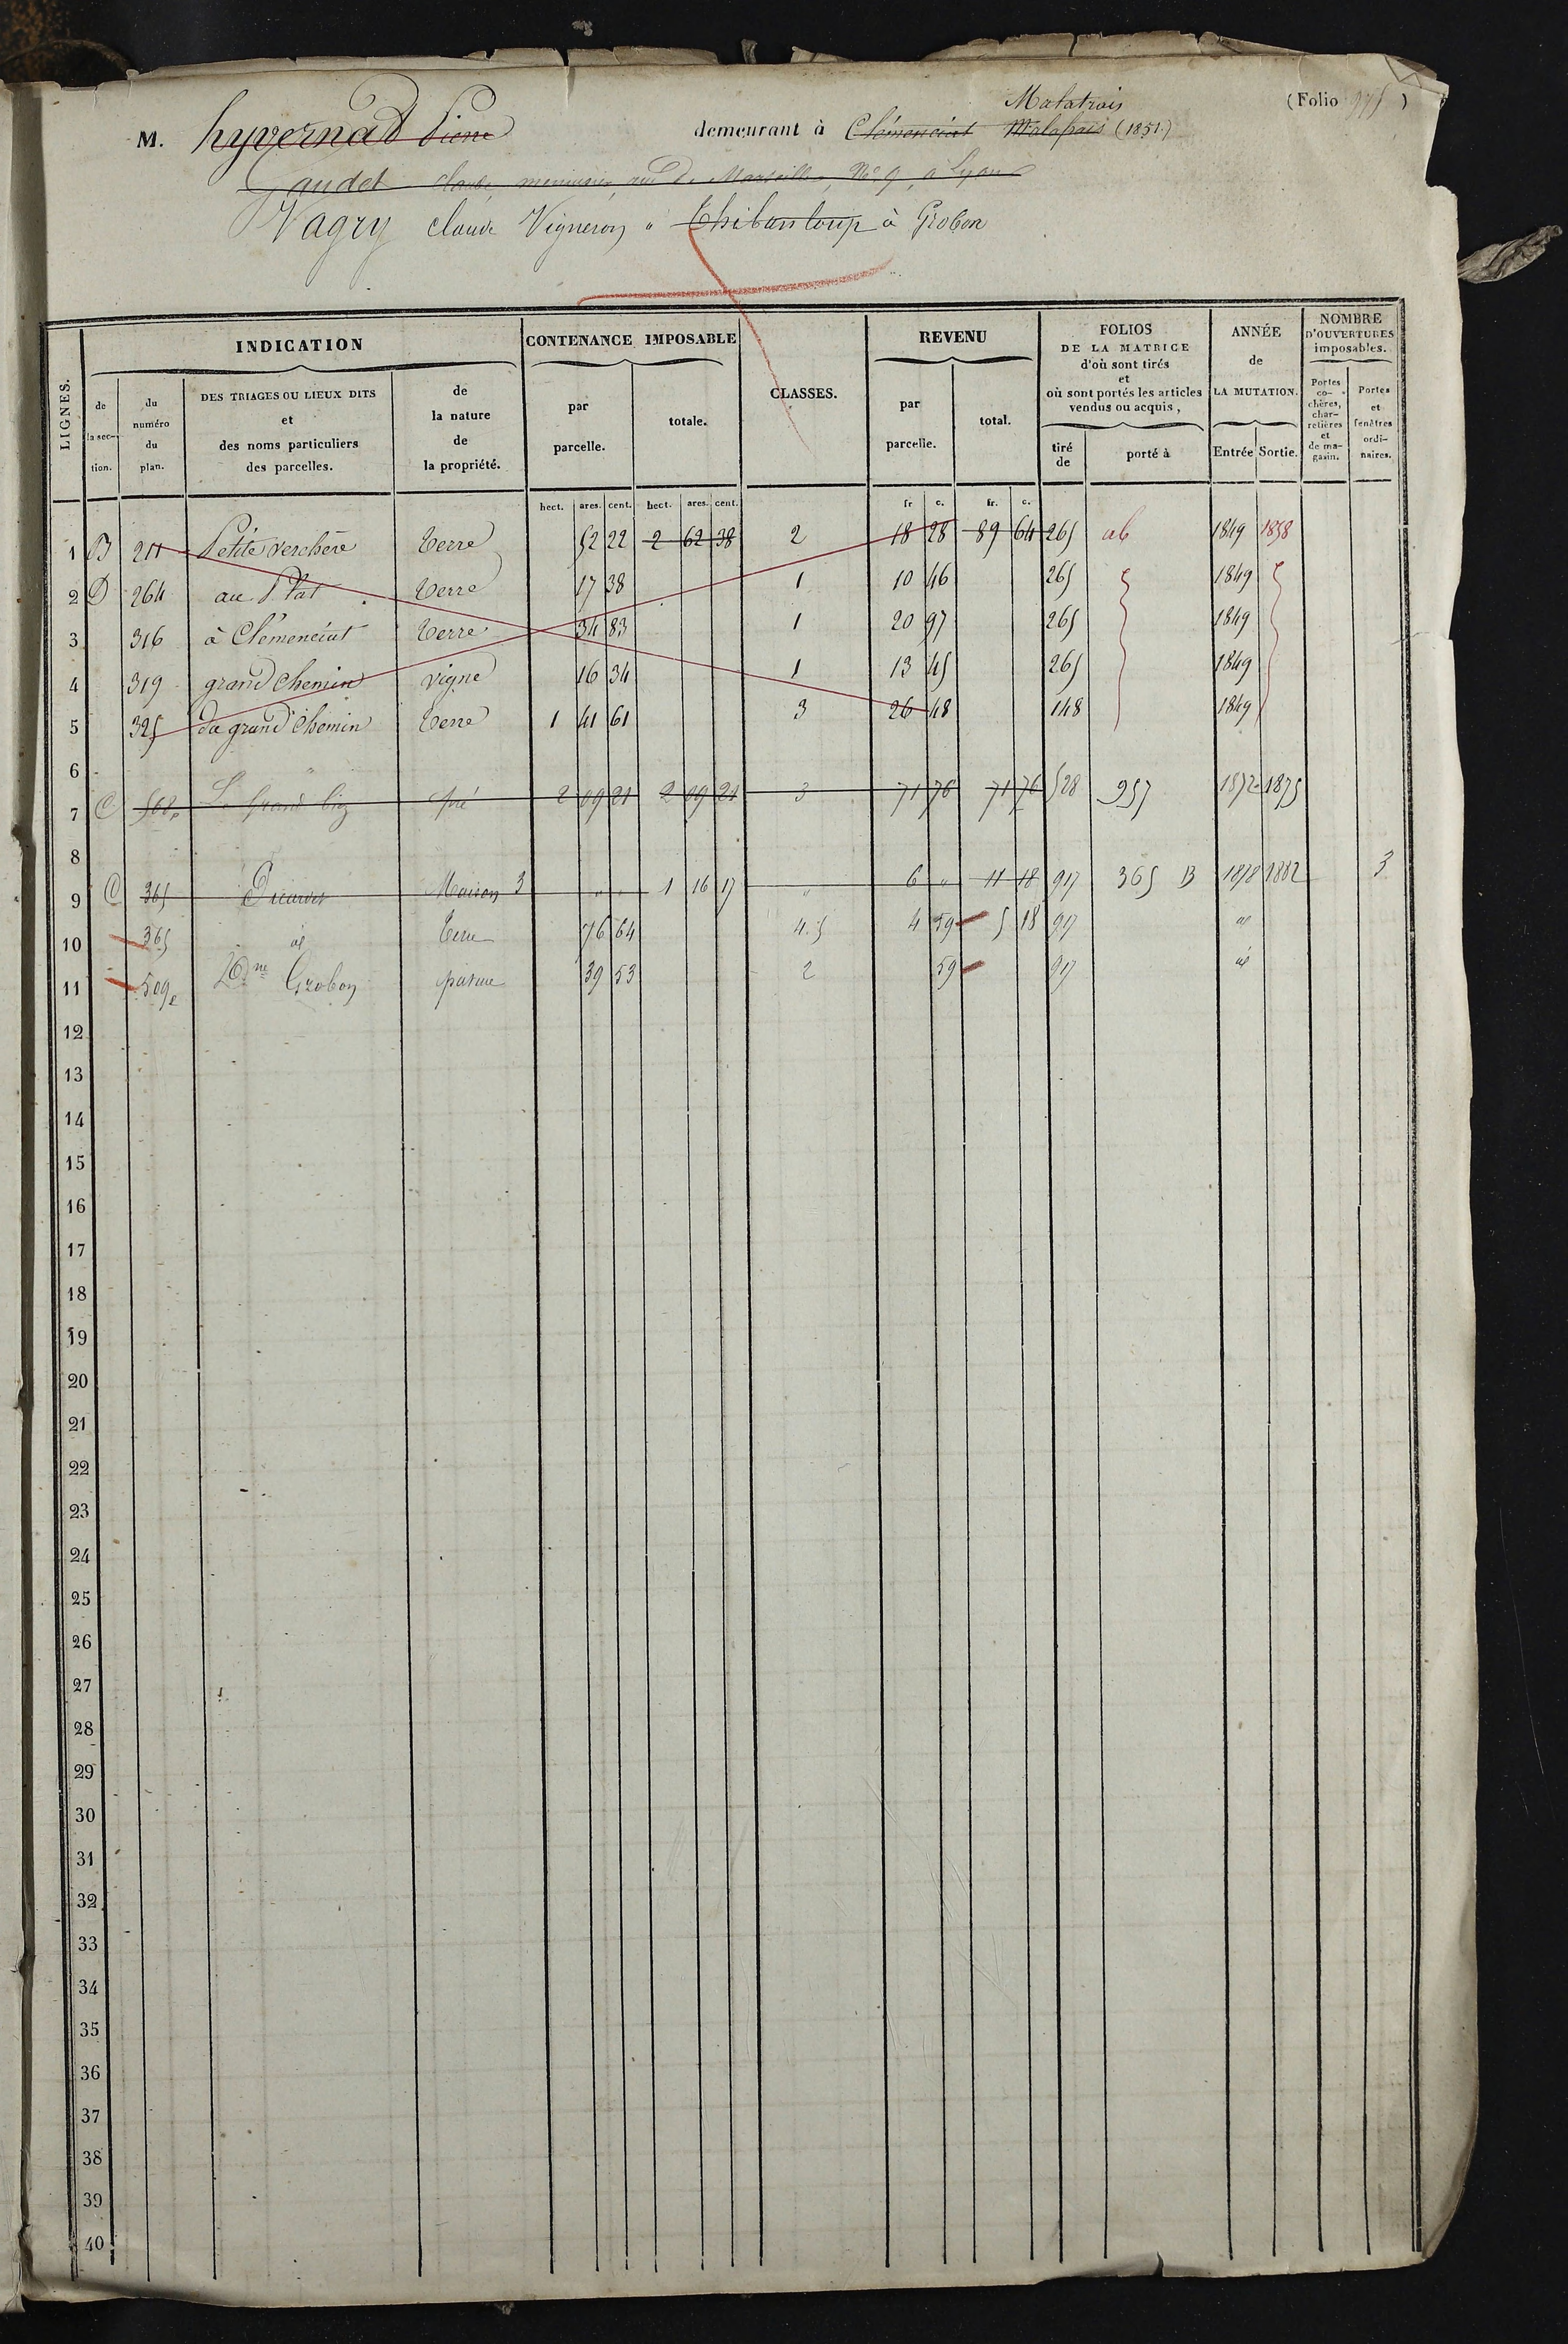 (Folio 975)
Malatrais
M. hyvernad Pierre demeurant à Clémenciat Malapais (1851.)
Gaudet claude, menuisier, rue de Marseille, No 9, à Lyon
Vagry claude Vigneron à Thibanloup à Grobon
LIGNES. INDICATION CONTENANCE IMPOSABLE CLASSES. REVENU FOLIOS DE LA MATRICE d'où sont tirés et où sont portés les articles vendus ou acquis, ANNÉE de LA MUTATION. NOMBRE D'OUVERTURES imposables.
de la section. du numéro du plan. DES TRIAGES OU LIEUX DITS et des noms particuliers des parcelles. de la nature de la propriété. par parcelle. totale. par parcelle. total. tiré de porté à Entrée Sortie. Portes cochères, charretières et de magasin. Portes et fenêtres ordinaires.
hect. ares. cent. hect. ares. cent. fr c. fr. c.
1 B 211 Petite verchère Terre 52 22 2 62 38 2 18 28 89 64 265 ab 1849 1858
2 D 264 au Plat Terre 17 38 1 10 46 265 1849
3 316 à Clémenciat Terre 34 83 1 20 97 265 1849
4 319 grand chemin vigne 16 34 1 13 45 265 1849
5 325 du grand chemin Terre 1 41 61 3 26 48 148 1849
6
7 C 508p Le Grand pré 2 09 21 2 09 21 3 71 76 71 76 528 957 1872 1875
8
9 C 365 Maison 3 " " 1 16 17 " 6 " 11 18 917 365 B 1878 1882 3
10 365 id Terre 76 64 4.5 4 59 5 18 917 id
11 509e Grobon pature 39 53 2 59 917 id
12
13
14
15
16
17
18
19
20
21
22
23
24
25
26
27
28
29
30
31
32
33
34
35
36
37
38
39
40